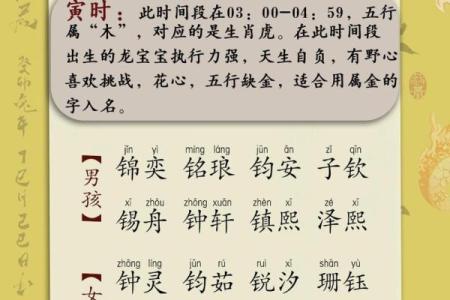 寅时：此时间段在03：00-04：59，五行
属“木”，对应的是生肖虎。在此时间段
出生的龙宝宝执行力强，天生自负，有野心
喜欢挑战，花心，五行缺金，适合用属金的
字入名。
【男孩】
jǐn yì míng láng jūn ān zǐ qīn
锦奕 铭琅 钧安 子钦
xī zhōu zhōng xuān zhèn xī zé xī
锡舟 钟轩 镇熙 泽熙
【女
zhōng líng jūn rú ruì xī shān yù
钟灵 钧茹 锐汐 珊钰
癸卯兔年
丁巳